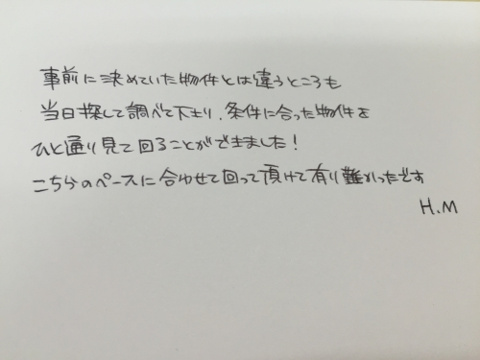 事前に決めていた物件とは違うところも
当日探して調べて下さり、条件に合った物件を
ひと通り見て回ることができました!
こちらのペースに合わせて回って頂けて有り難かったです
H.M